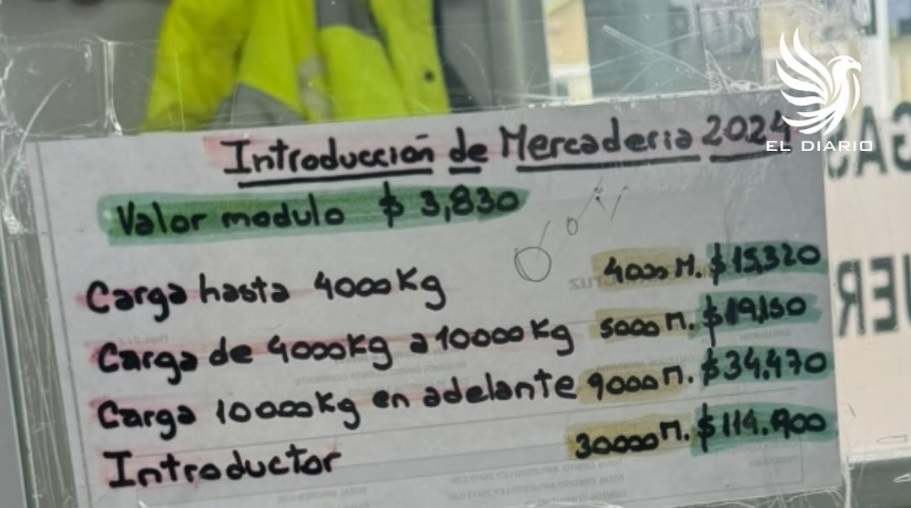 EL DIARIO
Introducción de Mercaderia 2024
Valor modulo $ 3,830
Carga hasta 4000Kg 4000 M. $15,320
Carga de 4000Kg a 10000Kg 5000 M. $19,150
Carga 10000Kg en adelante 9000 M. $34,470
Introductor 30000 M. $114.900
GAS